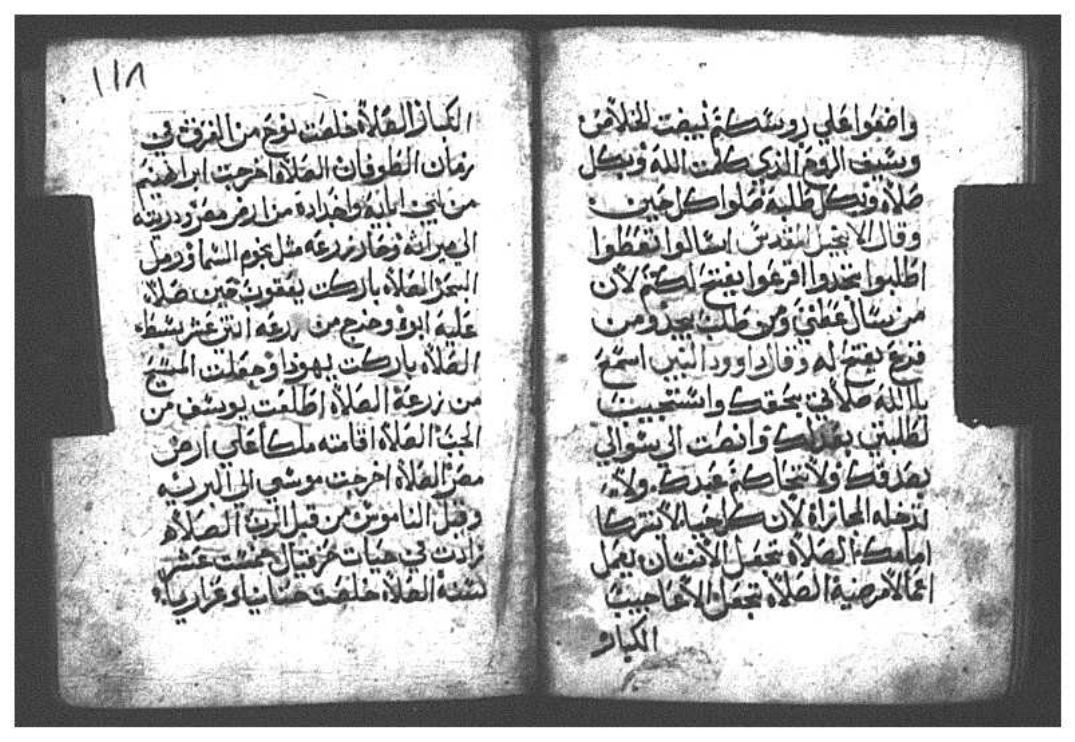 واضعوا علي روسكم بيضت الخلاص
وسيف الروح الذي كلمت الله وبكل
صلاه وبكل طلبة صلوا كل حين
وقال الانجيل المقدس اسالوا تعطوا
اطلبوا تجدوا اقرعوا يفتح لكم لان
من سال عطي ومن طلب يجد ومن
قرع يفتح له وقال داوود النبي اسمع
يا الله صلاتي بحقك واستجيب
لطلبتي بعدلك وانصت الى سوالي
بصدقك ولا تتحاكم عبدك ولا
تدخله المجازاه لان كل حيا لا يتزكا
امامك الصلاه تجعل الانسان يعمل
اعمالا مرضية الصلاه تجعل الاعاجيب
الكبار
١١٨
الكبار الصلاه خلصت نوح من الغرق في
زمان الطوفان الصلاه اخرجت ابراهيم
من بين ابايه واجداده من ارض مصر ودريته
الي ميراثه وصار زرعه مثل نجوم السما ورمل
البحر الصلاه باركت يعقوب حين صلاه
عليه ابوه وخرج من زرعه اتني عشر سبط
الصلاه باركت يهودا وجعلت المسيح
من زرعه الصلاه اطلعت يوسف من
الجب الصلاه اقامته ملكا علي ارض
مصر الصلاه اخرجت موسي الي البريه
وقبل الناموس من قبل الرب الصلاه
زادت في حيات حزقيال خمست عشر
سنة الصلاه خلصت حنانيا وعزاريا